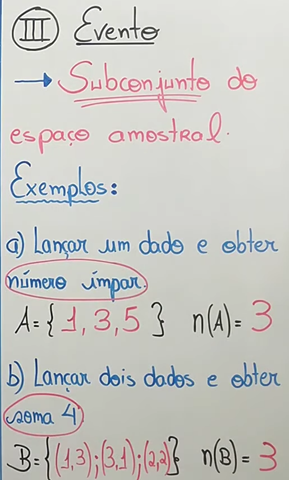 III Evento
→ Subconjunto do
espaço amostral.
Exemplos:
a) Lançar um dado e obter
número ímpar.
A = { 1, 3, 5 } n(A) = 3
b) Lançar dois dados e obter
soma 4
B = {(1,3); (3,1); (2,2)} n(B) = 3